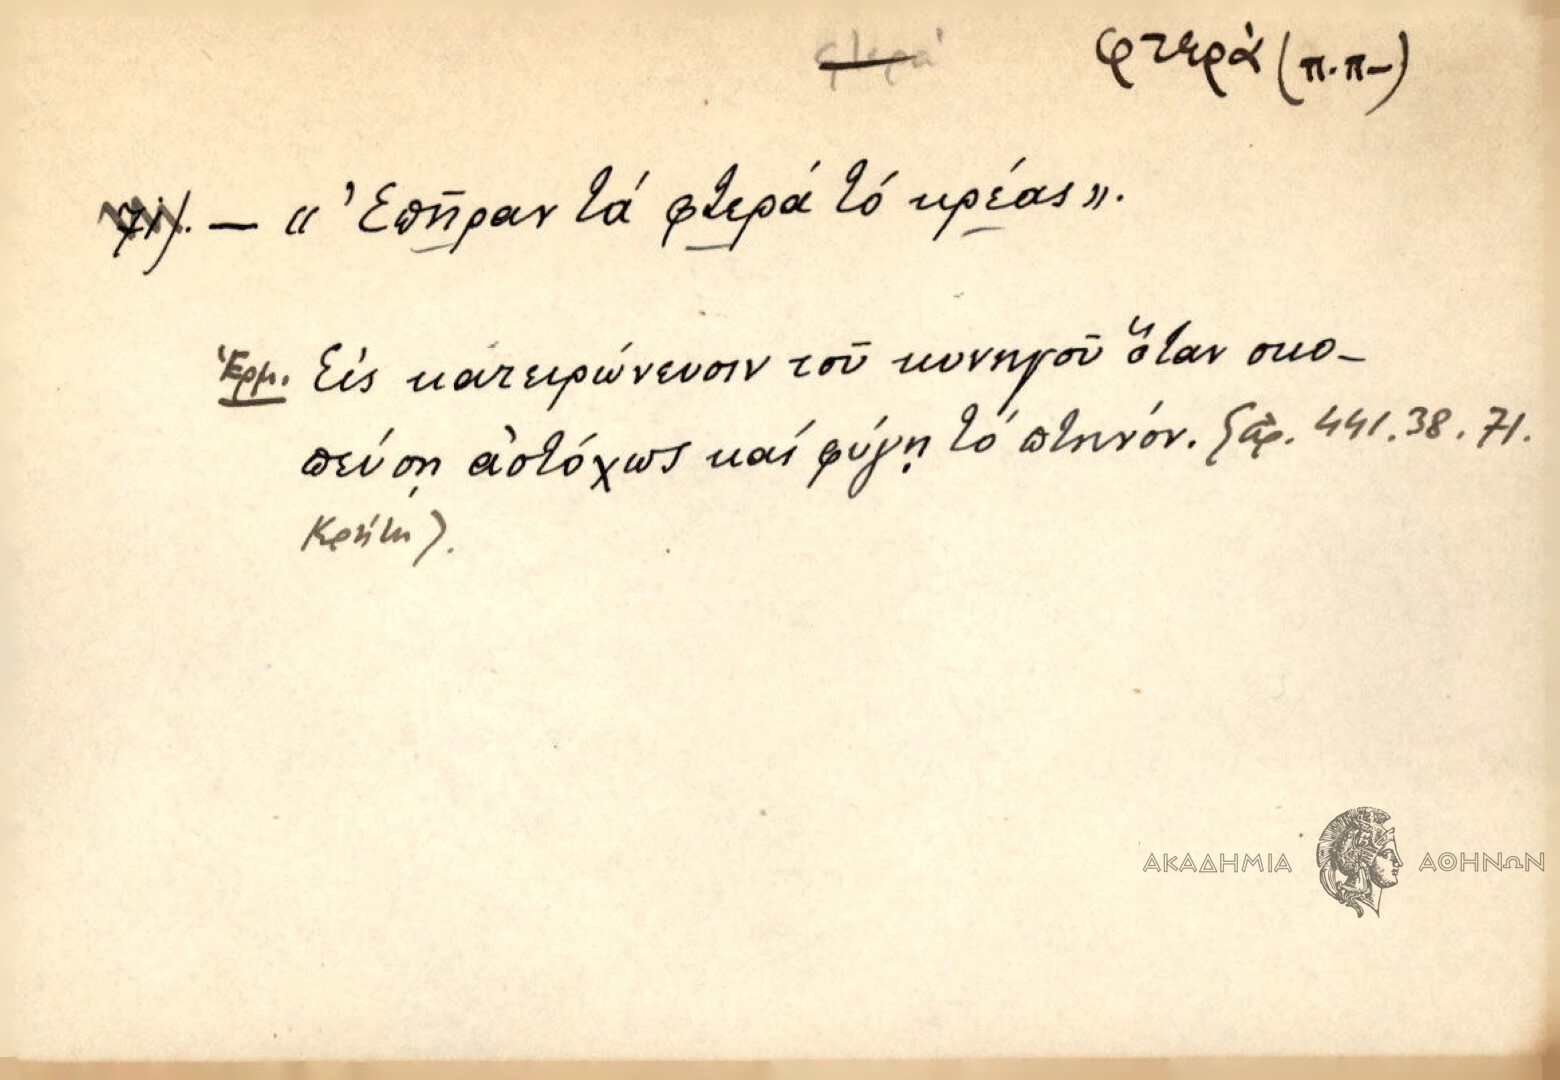 φτερά φτερά (π.π-)
71). — « Ἐπῆραν τά φτερά τό κρέας ».
Ἑρμ. Εἰς κατειρώνευσιν τοῦ κυνηγοῦ ὅταν σκο-
πεύσῃ ἀστόχως καί φύγῃ τό πτηνόν. 441.38.71.
Κρήτη).
ΑΚΑΔΗΜΙΑ ΑΘΗΝΩΝ